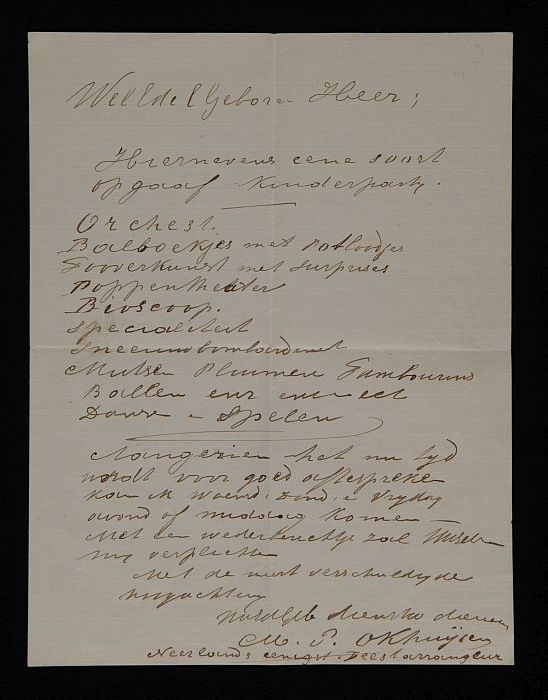 WelEdelGeboren Heer;
Hiernevens eene soort
opgaaf Kinderparty.
Orchest.
Balboekjes met Potloodjes
Tooverkunst met surprises
Poppentheater
Bioscoop.
Specialiteit
Sneeuwbombardement
Mutsen Pluimen Tambourins
Ballen enz enz
Dans en Spelen
Aangezien het nu tyd
wordt voor goed afte spreken
kan ik Woensd: Dond: en Vrydag
avond of middag komen —
Met een wederberichtje zal UEdele
my verplichten
Met de meest verschuldigde
hoogachting
dienstw dienaar
M. J. Okhuijsen
Neerlands eenigst Feestarrangeur